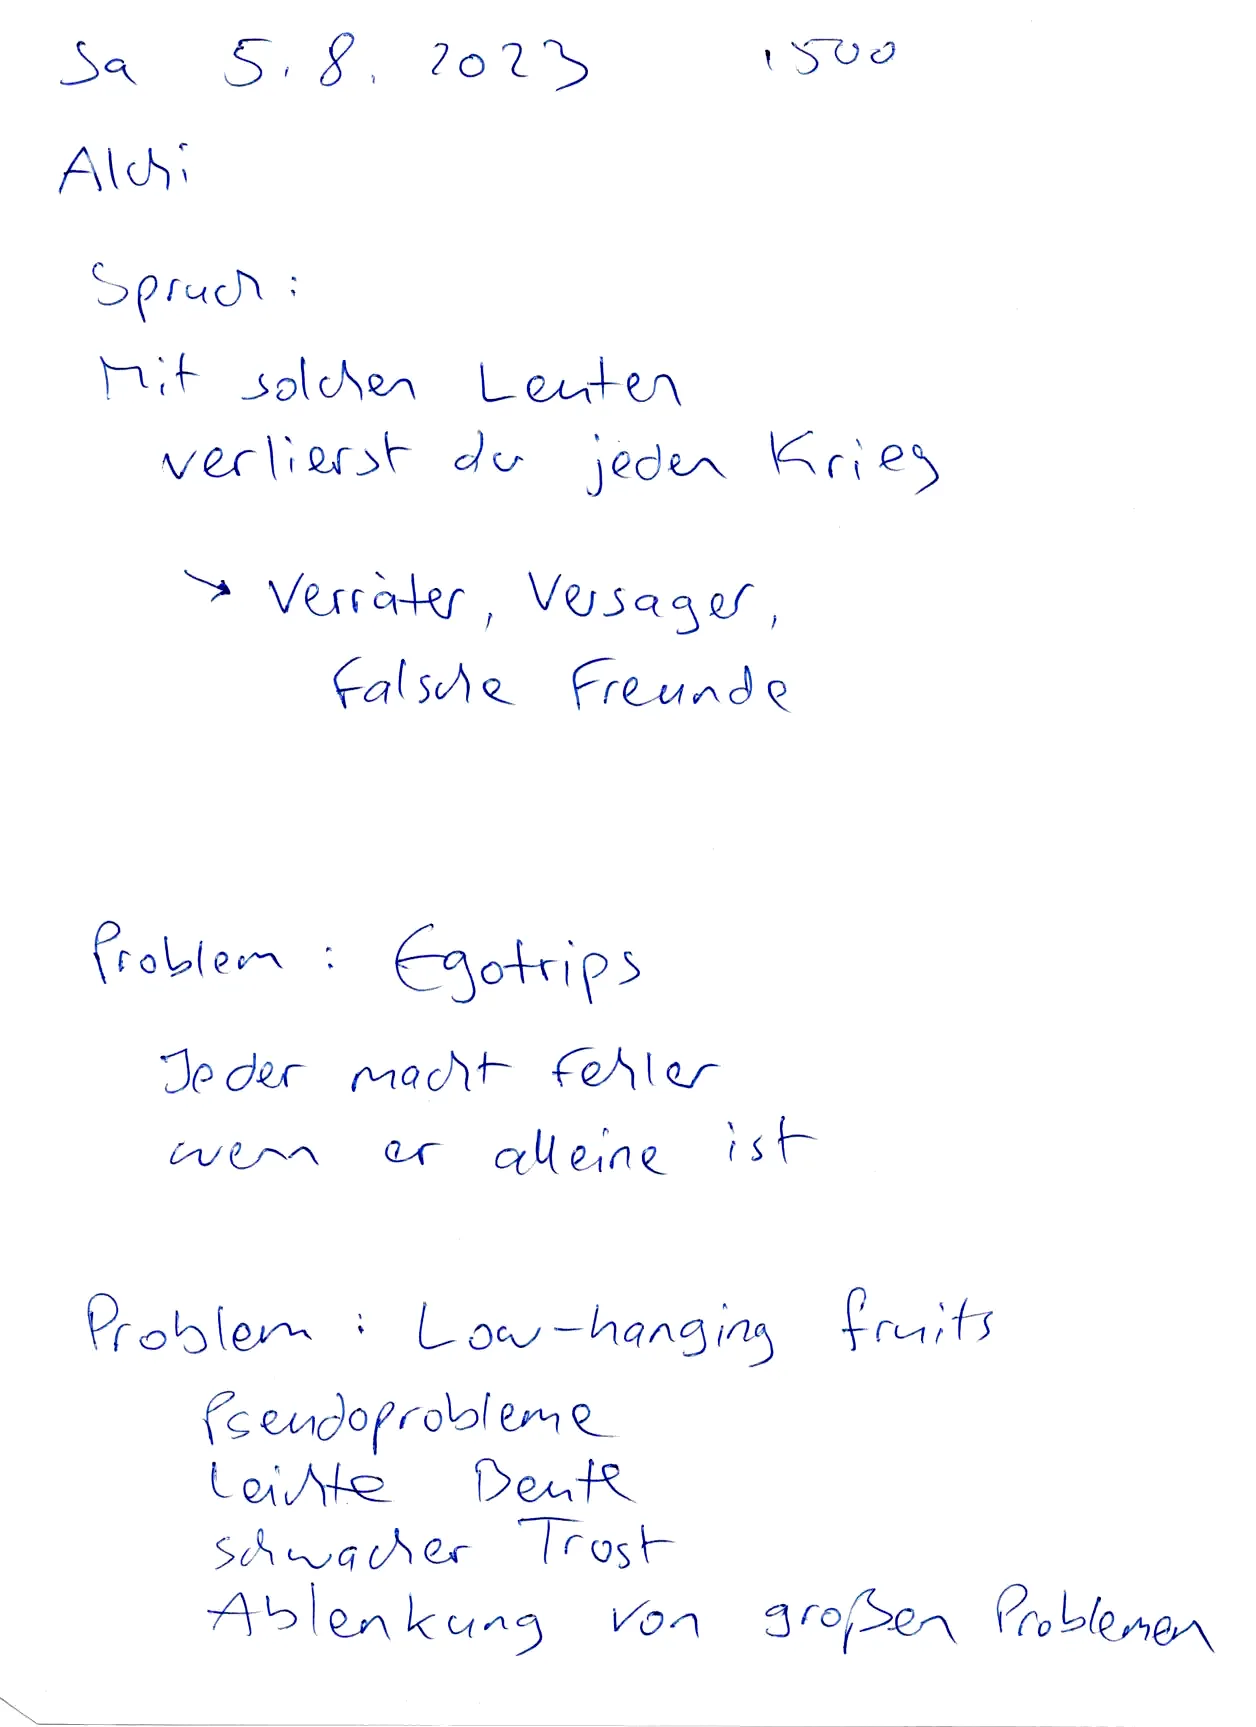 Sa 5.8.2023 1500
Alchi
Spruch:
Mit solchen Leuten
verlierst du jeden Krieg
→ Verräter, Versager,
falsche Freunde
Problem: Egotrips
Jeder macht Fehler
wenn er alleine ist
Problem: Low-hanging fruits
Pseudoprobleme
Leichte Beute
schwacher Trost
Ablenkung von großen Problemen